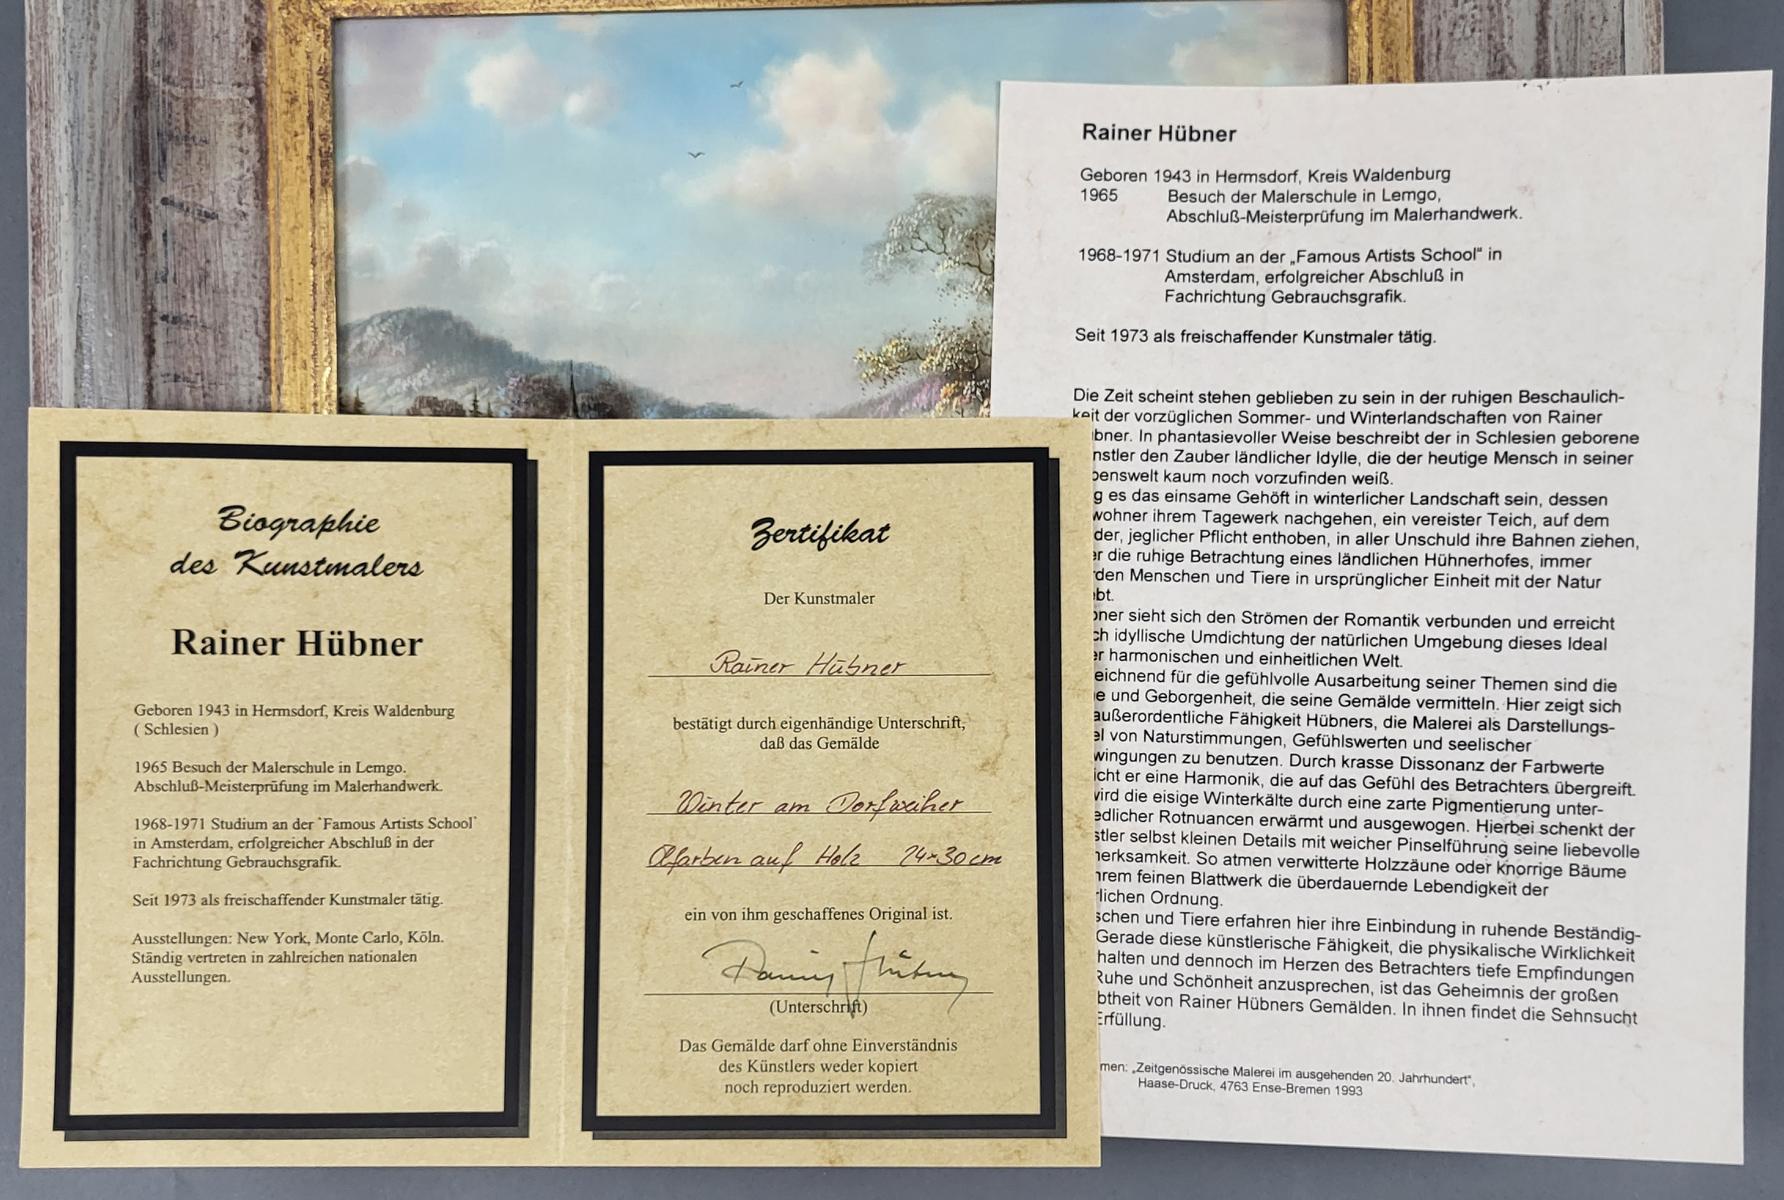 Biographie
des Kunstmalers
Rainer Hübner
Geboren 1943 in Hermsdorf, Kreis Waldenburg
( Schlesien )
1965 Besuch der Malerschule in Lemgo.
Abschluß-Meisterprüfung im Malerhandwerk.
1968-1971 Studium an der "Famous Artists School"
in Amsterdam, erfolgreicher Abschluß in der
Fachrichtung Gebrauchsgrafik.
Seit 1973 als freischaffender Kunstmaler tätig.
Ausstellungen: New York, Monte Carlo, Köln.
Ständig vertreten in zahlreichen nationalen
Ausstellungen.
Zertifikat
Der Kunstmaler
Rainer Hübner
bestätigt durch eigenhändige Unterschrift,
daß das Gemälde
Winter am Dorfweiher
Ölfarben auf Holz 24×30 cm
ein von ihm geschaffenes Original ist.
Rainer Hübner
(Unterschrift)
Das Gemälde darf ohne Einverständnis
des Künstlers weder kopiert
noch reproduziert werden.
Rainer Hübner
Geboren 1943 in Hermsdorf, Kreis Waldenburg
1965 Besuch der Malerschule in Lemgo,
Abschluß-Meisterprüfung im Malerhandwerk.
1968-1971 Studium an der „Famous Artists School" in
Amsterdam, erfolgreicher Abschluß in
Fachrichtung Gebrauchsgrafik.
Seit 1973 als freischaffender Kunstmaler tätig.
Die Zeit scheint stehen geblieben zu sein in der ruhigen Beschaulich-
keit der vorzüglichen Sommer- und Winterlandschaften von Rainer
bner. In phantasievoller Weise beschreibt der in Schlesien geborene
nstler den Zauber ländlicher Idylle, die der heutige Mensch in seiner
benswelt kaum noch vorzufinden weiß.
g es das einsame Gehöft in winterlicher Landschaft sein, dessen
wohner ihrem Tagewerk nachgehen, ein vereister Teich, auf dem
der, jeglicher Pflicht enthoben, in aller Unschuld ihre Bahnen ziehen,
er die ruhige Betrachtung eines ländlichen Hühnerhofes, immer
rden Menschen und Tiere in ursprünglicher Einheit mit der Natur
bt.
bner sieht sich den Strömen der Romantik verbunden und erreicht
ch idyllische Umdichtung der natürlichen Umgebung dieses Ideal
er harmonischen und einheitlichen Welt.
eichnend für die gefühlvolle Ausarbeitung seiner Themen sind die
e und Geborgenheit, die seine Gemälde vermitteln. Hier zeigt sich
außerordentliche Fähigkeit Hübners, die Malerei als Darstellungs-
el von Naturstimmungen, Gefühlswerten und seelischer
wingungen zu benutzen. Durch krasse Dissonanz der Farbwerte
icht er eine Harmonik, die auf das Gefühl des Betrachters übergreift.
wird die eisige Winterkälte durch eine zarte Pigmentierung unter-
edlicher Rotnuancen erwärmt und ausgewogen. Hierbei schenkt der
stler selbst kleinen Details mit weicher Pinselführung seine liebevolle
merksamkeit. So atmen verwitterte Holzzäune oder knorrige Bäume
hrem feinen Blattwerk die überdauernde Lebendigkeit der
rlichen Ordnung.
schen und Tiere erfahren hier ihre Einbindung in ruhende Beständig-
Gerade diese künstlerische Fähigkeit, die physikalische Wirklichkeit
halten und dennoch im Herzen des Betrachters tiefe Empfindungen
Ruhe und Schönheit anzusprechen, ist das Geheimnis der großen
btheit von Rainer Hübners Gemälden. In ihnen findet die Sehnsucht
Erfüllung.
men: „Zeitgenössische Malerei im ausgehenden 20. Jahrhundert",
Haase-Druck, 4763 Ense-Bremen 1993